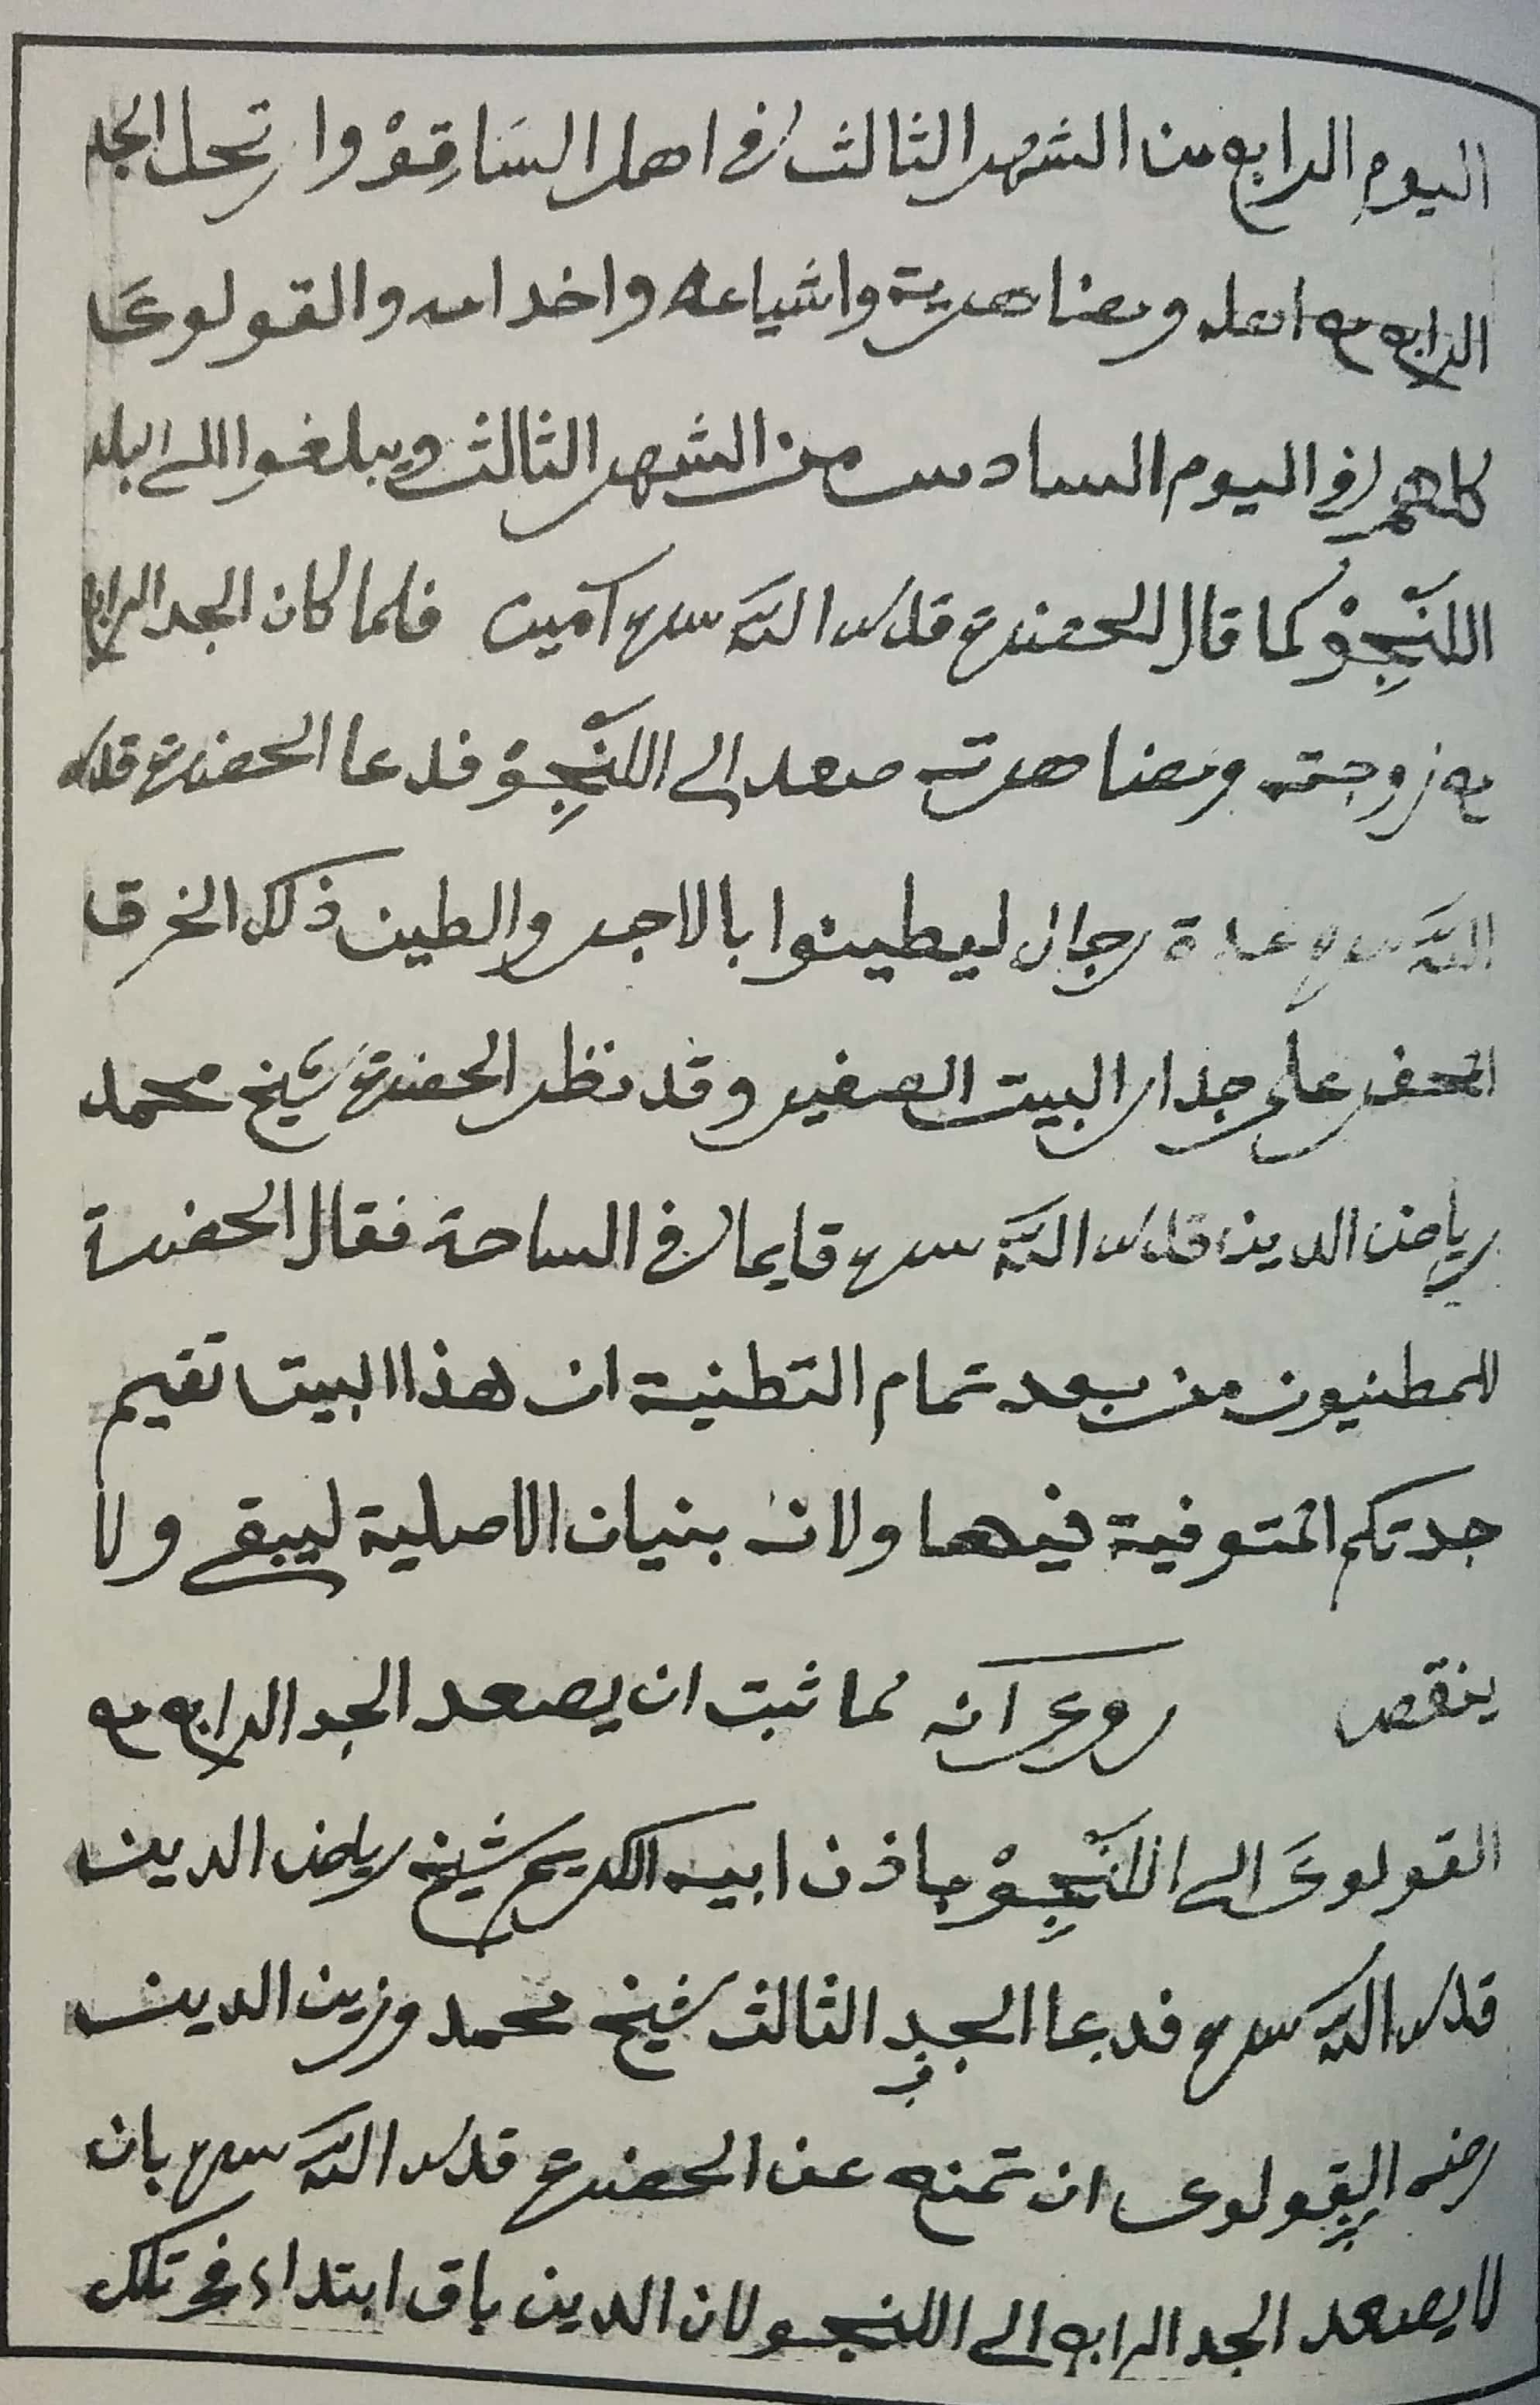 اليوم الرابع من الشهر الثالث في اهل السَاقِوْ وا رتحل الجد
الرابع مع اهله ومضاهرته واشياعه واخدامه والقولوىَ
كلهم في اليوم السادس من الشهر الثالث ويبلغوا الى البلد
اللنّجِوْ كما قال الحضرة قدس اللّه سره آمين فلما كان الجد الرابع
مع زوجته ومضاهرته صعد الى اللنّجِوْ فدعا الحضرة قدس
اللّه سره عدة رجال ليطينوا بالاجر والطين ذلك الخرق
المحفر على جدار البيت الصغير وقد نظر الحضرة شيخ محمد
رياضن الدين قدس اللّه سره قايما في الساحة فقال الحضرة
للمطنيون من بعد تمام التطنية ان هذا البيت تقيم
جدتكم المتوفية فيها ولانه بنيان الاصلية ليبقى ولا
ينقص روى انه لما ثبت ان يصعد الجد الرابع مع
القولوىَ الى اللنّجِوْ باذن ابيه الكريم شيخ رياضن الدين
قدس اللّه سره فدعا الجد الثالث شيخ محمد وزين الدين
رضه القولوى ان تمنع عن الحضرة قدس اللّه سره بان
لا يصعد الجد الرابع الى اللنجو لان الدين باق ابتداء في تلك